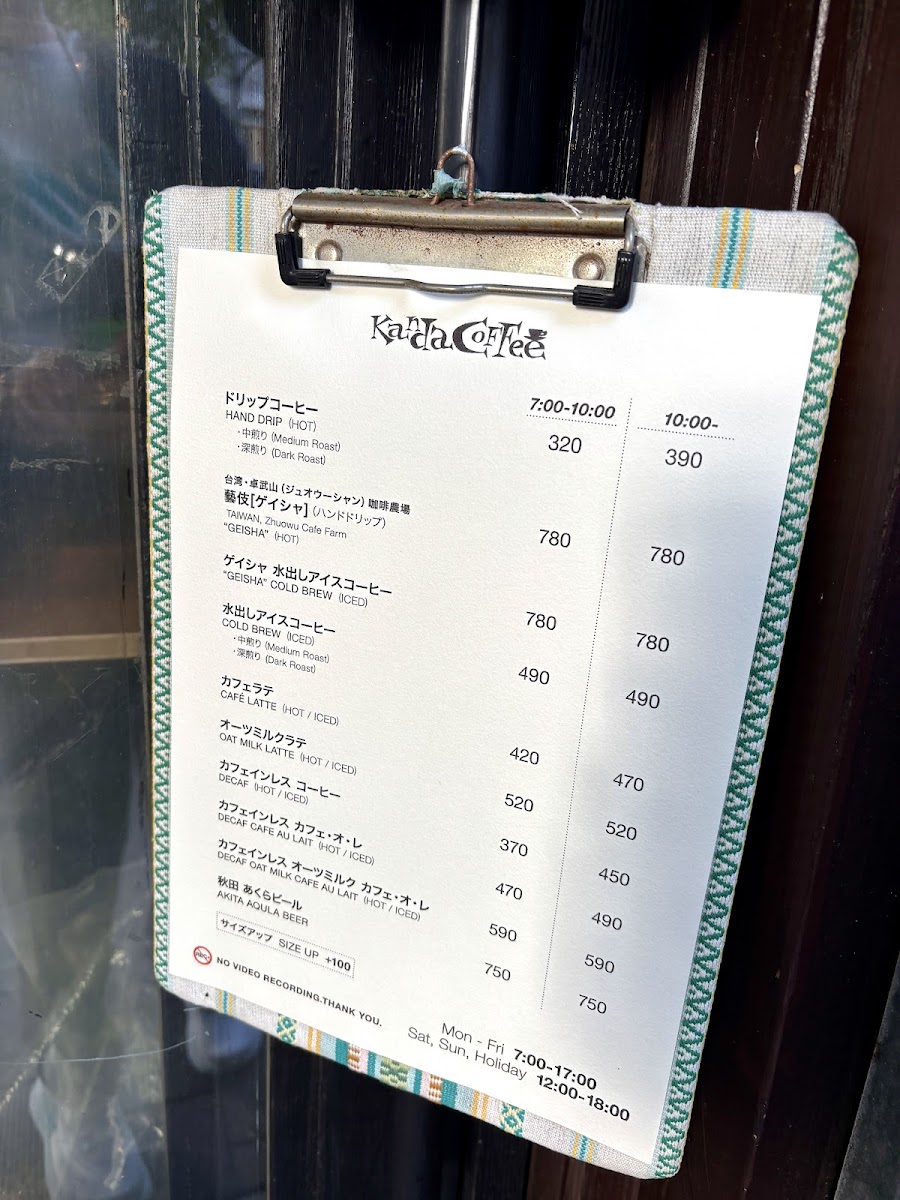 Kanda Coffee
7:00-10:00 10:00-
ドリップコーヒー
HAND DRIP (HOT) 320 390
・中煎り (Medium Roast)
・深煎り (Dark Roast)
台湾・卓武山 (ジュオウーシャン) 珈琲農場
藝伎[ゲイシャ] (ハンドドリップ)
TAIWAN, Zhuowu Cafe Farm
"GEISHA" (HOT) 780 780
ゲイシャ 水出しアイスコーヒー
"GEISHA" COLD BREW (ICED) 780 780
水出しアイスコーヒー
COLD BREW (ICED) 490 490
・中煎り (Medium Roast)
・深煎り (Dark Roast)
カフェラテ
CAFÉ LATTE (HOT / ICED) 420 470
オーツミルクラテ
OAT MILK LATTE (HOT / ICED) 520 520
カフェインレス コーヒー
DECAF (HOT / ICED) 370 450
カフェインレス カフェ・オ・レ
DECAF CAFE AU LAIT (HOT / ICED) 470 490
カフェインレス オーツミルク カフェ・オ・レ
DECAF OAT MILK CAFE AU LAIT (HOT / ICED) 590 590
秋田 あくらビール
AKITA AQULA BEER 750 750
サイズアップ SIZE UP +100
NO VIDEO RECORDING.THANK YOU.
Mon - Fri 7:00-17:00
Sat, Sun, Holiday 12:00-18:00